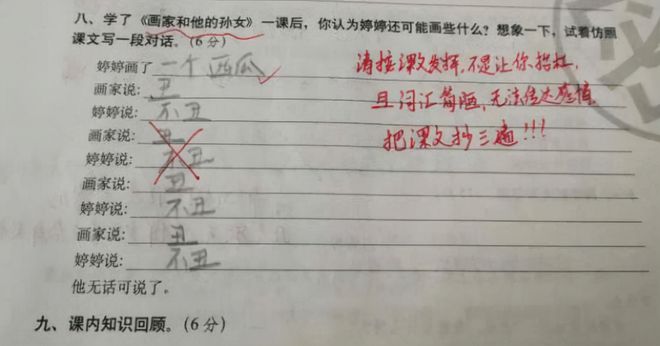 八、学了《画家和他的孙女》一课后，你认为婷婷还可能画些什么？想象一下，试着仿照
课文写一段对话。（6分）
婷婷画了 一个西瓜
画家说: 丑
婷婷说: 不丑
画家说: 丑
婷婷说: 不丑
画家说: 丑
婷婷说: 不丑
画家说: 丑
婷婷说: 不丑
他无话可说了。
请按课文发挥,不是让你抬杠,
且词汇简陋,无法传达感情
把课文抄三遍!!!
九、课内知识回顾。（6分）